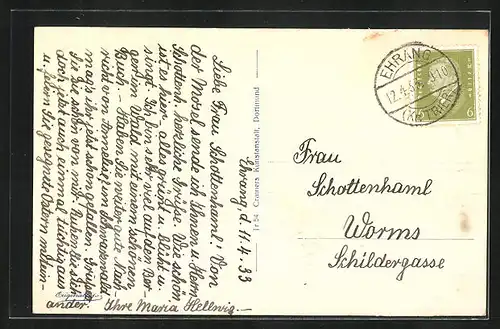 Ehrang d. 11.4.33
Liebe Frau Schottenhaml! Von
der Mosel sende ich Ihnen u. Herrn
Schottenh. herzliche Grüsse. Wie schön
ist es hier, alles grünt u. blüht u.
singt. Ich bin sehr viel auf den Ber-
gen im Wald mit einem schönen
Buch. – Haben Sie weiter gute Nach-
richt von Annelies im Schwarzwald?
mag's ihr jetzt schon gefallen. Grüssen
Sie sie schön von mir. Ruhen Sie sich
doch jetzt auch einmal tüchtig aus
u. feiern Sie gesegnete Ostern mitein-
ander. Ihre Maria Hellwig. –
Fr 54 Cramers Kunstanstalt, Dortmund
EHRANG
12.4.33
(BZ. TRIER)
6
Frau
Schottenhaml
Worms
Schildergasse